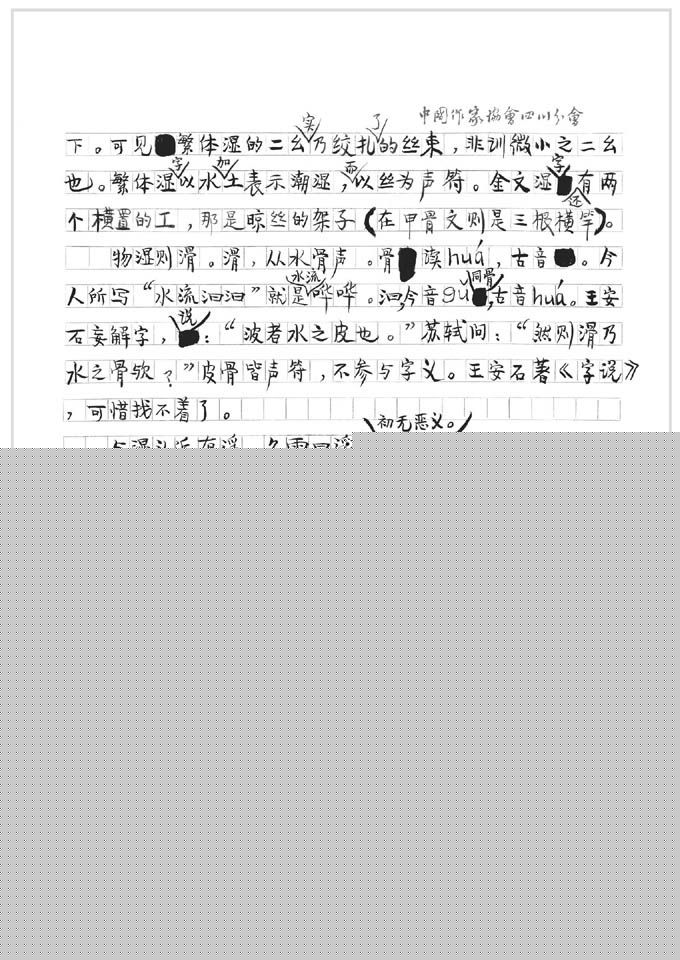 中国作家协會四川分會
下。可见繁体湿的二幺实乃绞扎了的丝束，非训微小之二幺
也。繁体湿字以水加土表示潮湿，而以丝为声符。金文湿字还有两
个横置的工，那是晾丝的架子（在甲骨文则是三根横竿）。
物湿则滑。滑，从水骨声。骨读huá，古音。今
人所写“水流汩汩”就是水流哗哗。汩，今音gu同骨，古音huá。王安
石妄解字，说：“波者水之皮也。”苏轼问：“然则滑乃
水之骨欤？”皮骨皆声符，不参与字义。王安石著《字说》
，可惜找不着了。
初无恶义。